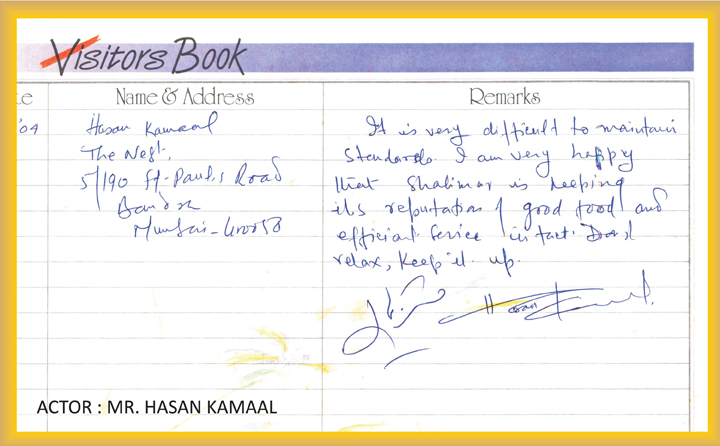 Visitors Book
te
Name & Address
Remarks
'04
Hasan Kamaal
The Nest,
5/190 St. Paul,s Road
Bandra
Mumbai-400050
It is very difficult to maintain
Standards. I am very happy
that Shalimar is keeping
its reputation of good food and
efficient Service intact. Don't
relax, Keep it up.
Hasan Kamaal.
ACTOR : MR. HASAN KAMAAL